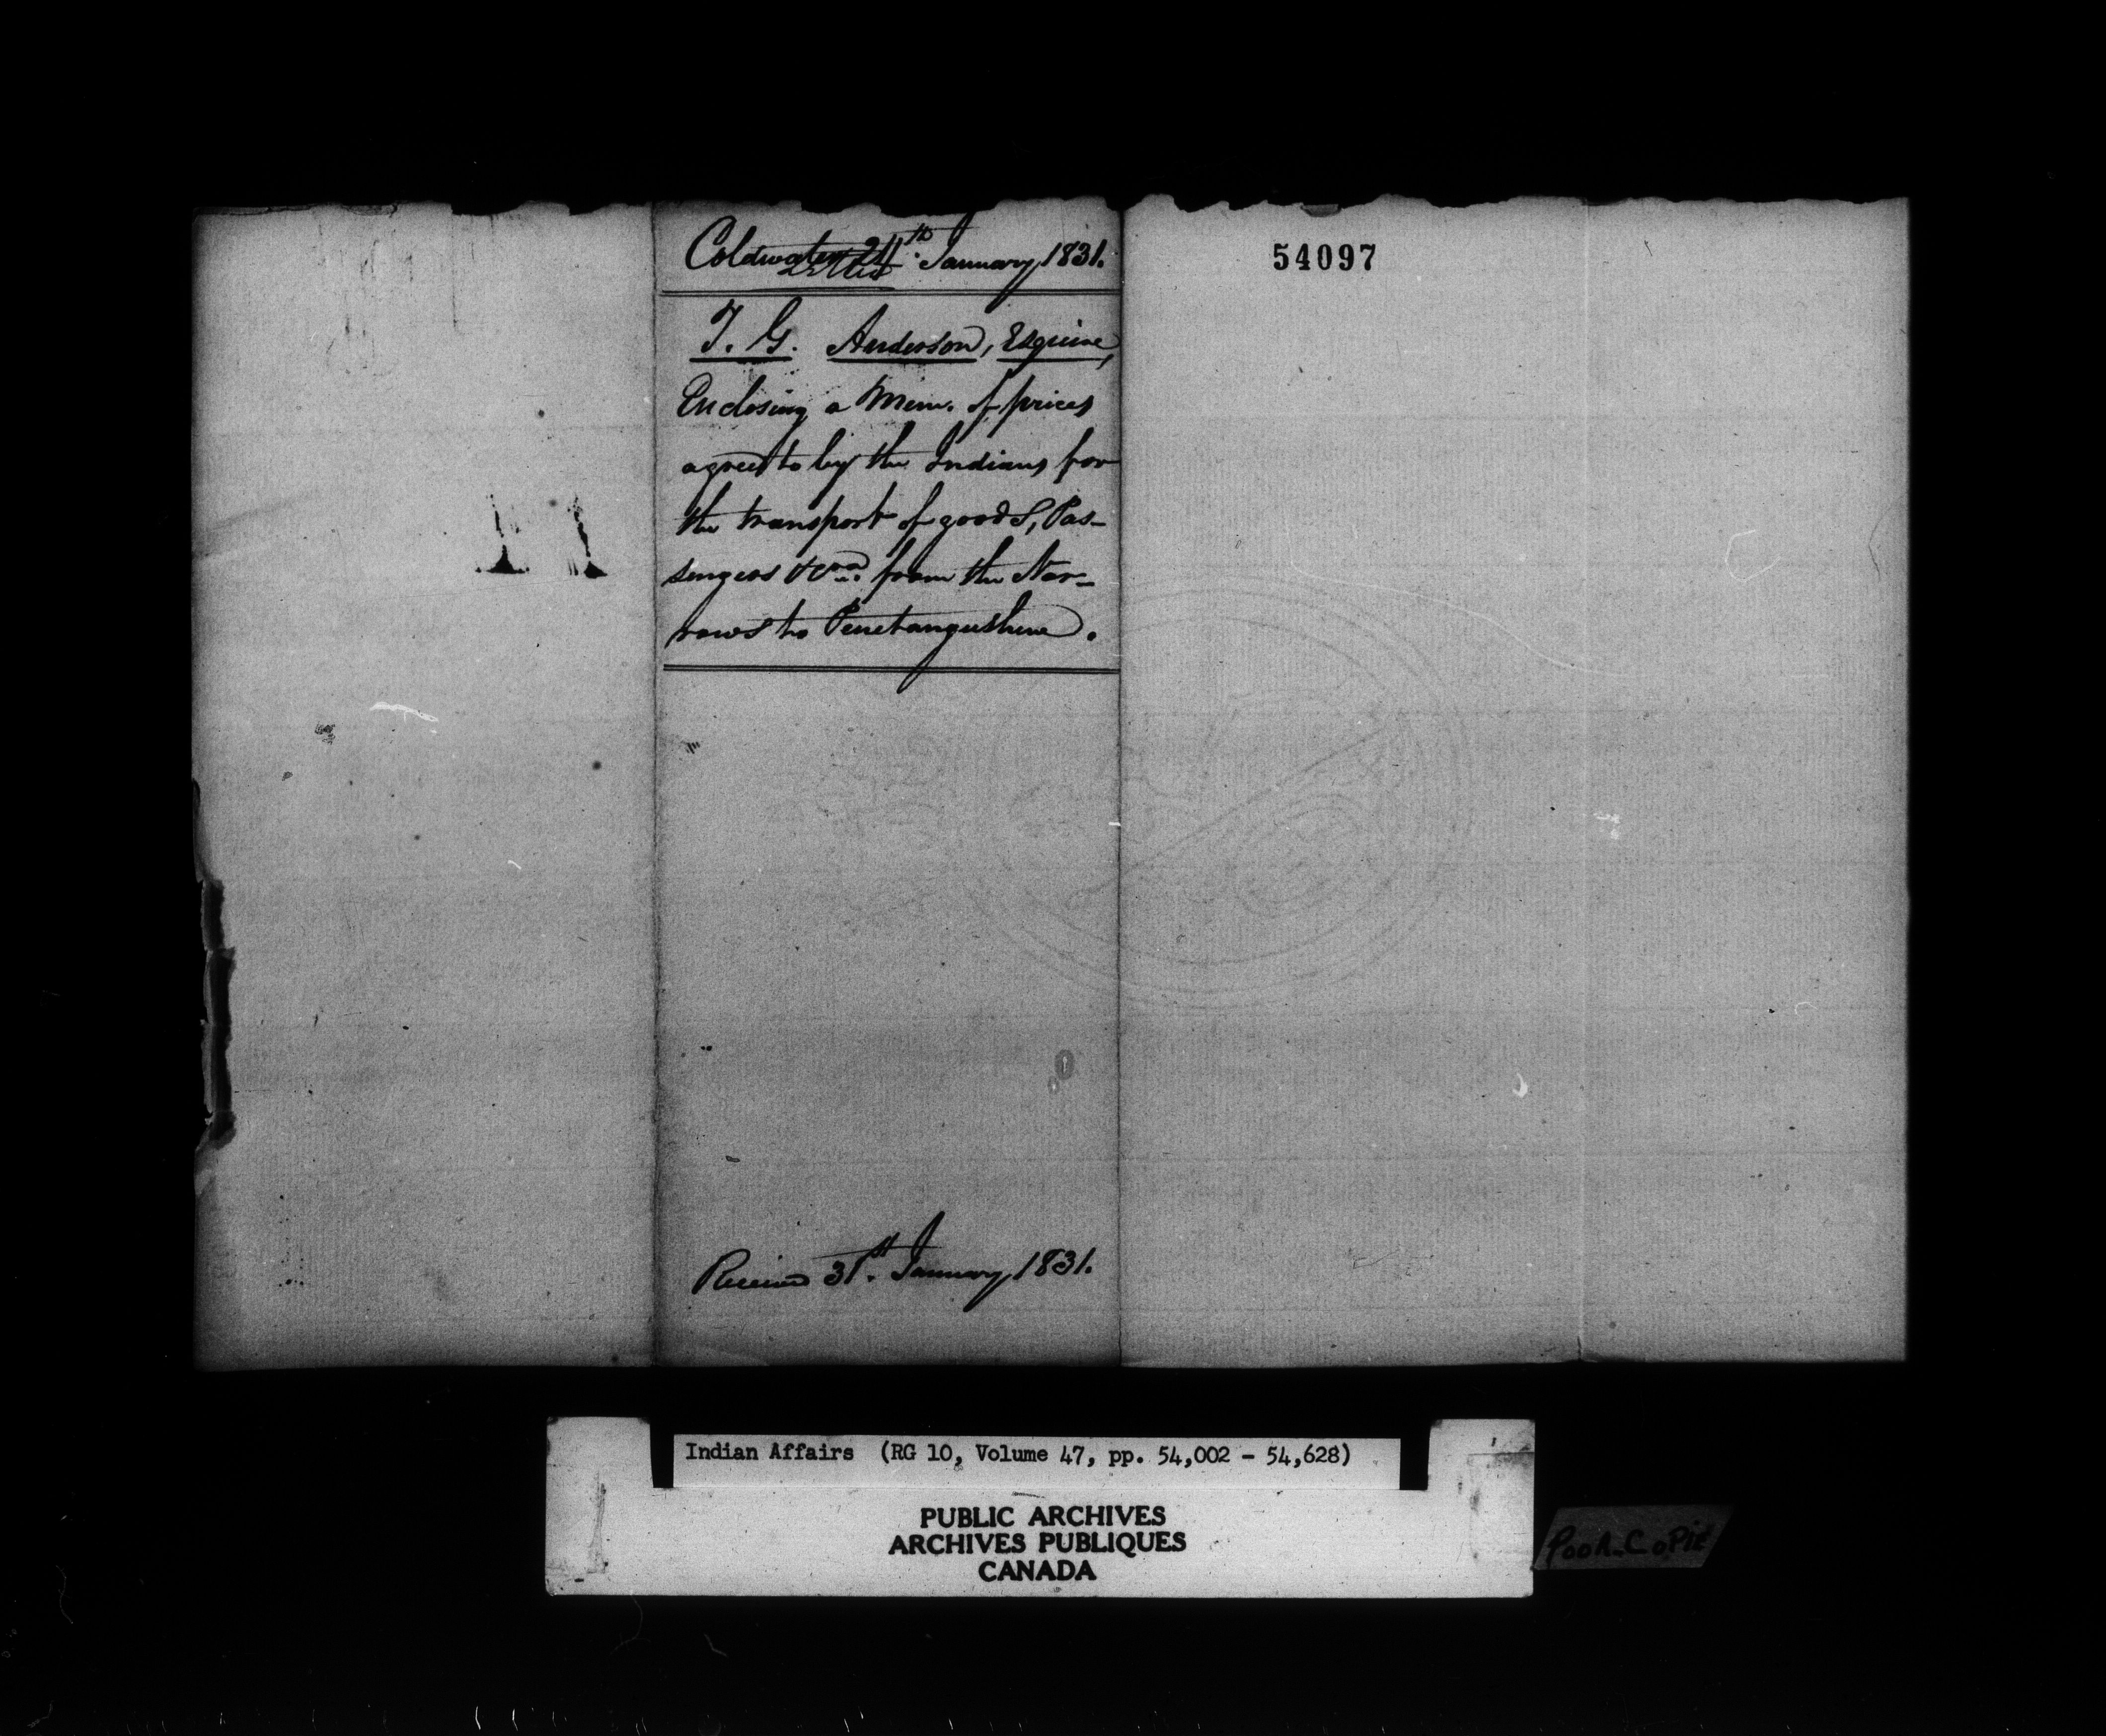 Coldwater 24th January 1831.
T. G. Anderson, Esquire,
Enclosing a Mem. of prices
agreed to by the Indians for
the transport of goods, Pas-
sengers &ca. from the Nar-
rows to Penetangushine.
Received 31st. January 1831.
54097
Indian Affairs (RG 10, Volume 47, pp. 54,002 - 54,628)
PUBLIC ARCHIVES
ARCHIVES PUBLIQUES
CANADA
POOR COPIE